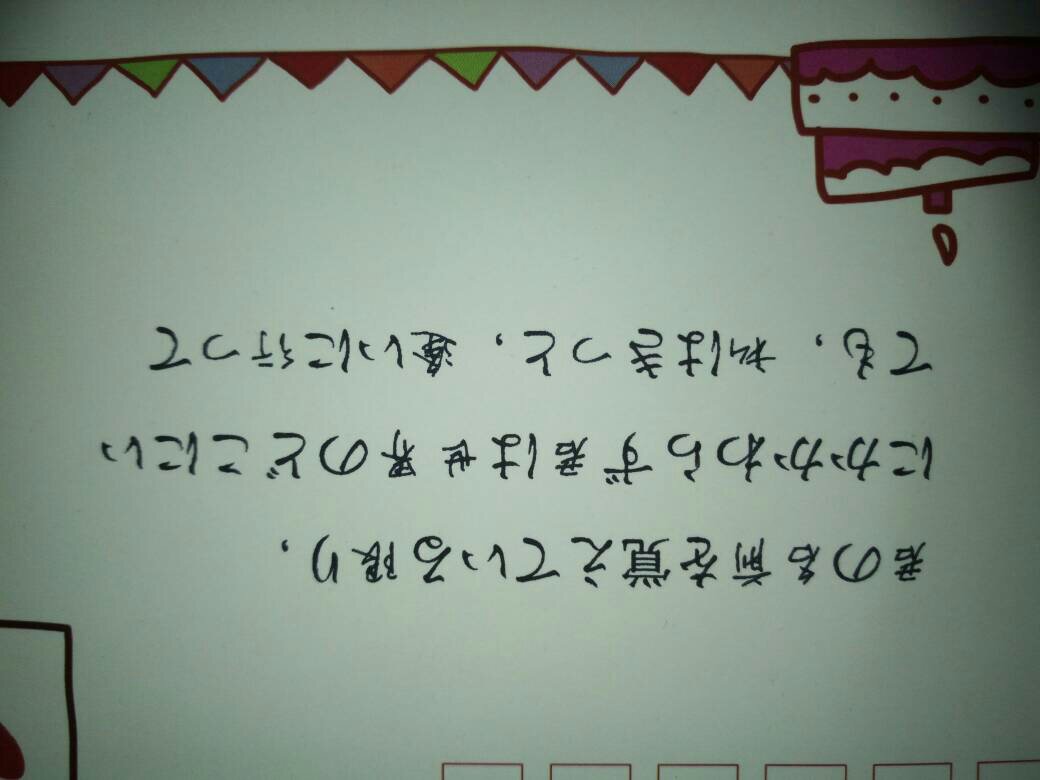 君の名前を覚えている限り，
にかかわらず君は世界のどこにい
ても，私はきっと，逢いに行って